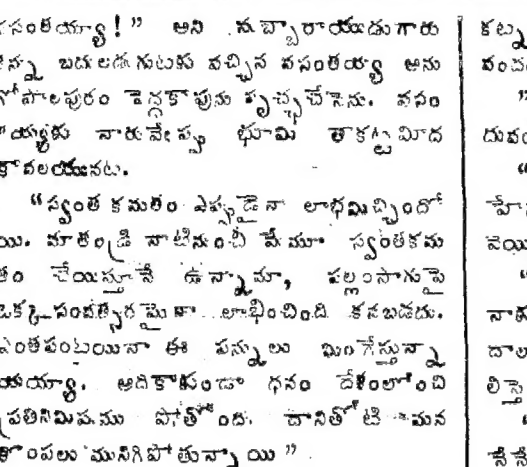 వసంతయ్యా!” అని సుబ్బారాయుడుగారు
తన్ను బదులడుగుటకు వచ్చిన వసంతయ్యా అను
గోపాలపురం పెద్దకాపును పృచ్ఛచేసెను. వసం
తయ్యకు నారువేప్పు భూమి తాకట్టుమీద
కావలయునట.
“స్వంత కమతం ఎప్పుడైనా లాభమిచ్చిందో
యి. మాతండ్రి నాటినుంచీ మేమూ స్వంతకమ
తం చేయిస్తూనే ఉన్నామా, పల్లంసాగుపై
ఒక్క సంవత్సరమైనా లాభించింది కనబడదు.
ఎంతపంటయినా ఈ పన్నులు మింగేస్తున్నా
యయ్యా. అదికాకుండా ధనం దేశంలోంచి
ప్రతినిమిషము పోతోంది. దానితోటి మన
కొంపలు మునిగిపోతున్నాయి”.
కట్న
వంచ
దువం
“
హే
నెయి
“
నాక
దాల
లిస్తె
“
నేనే